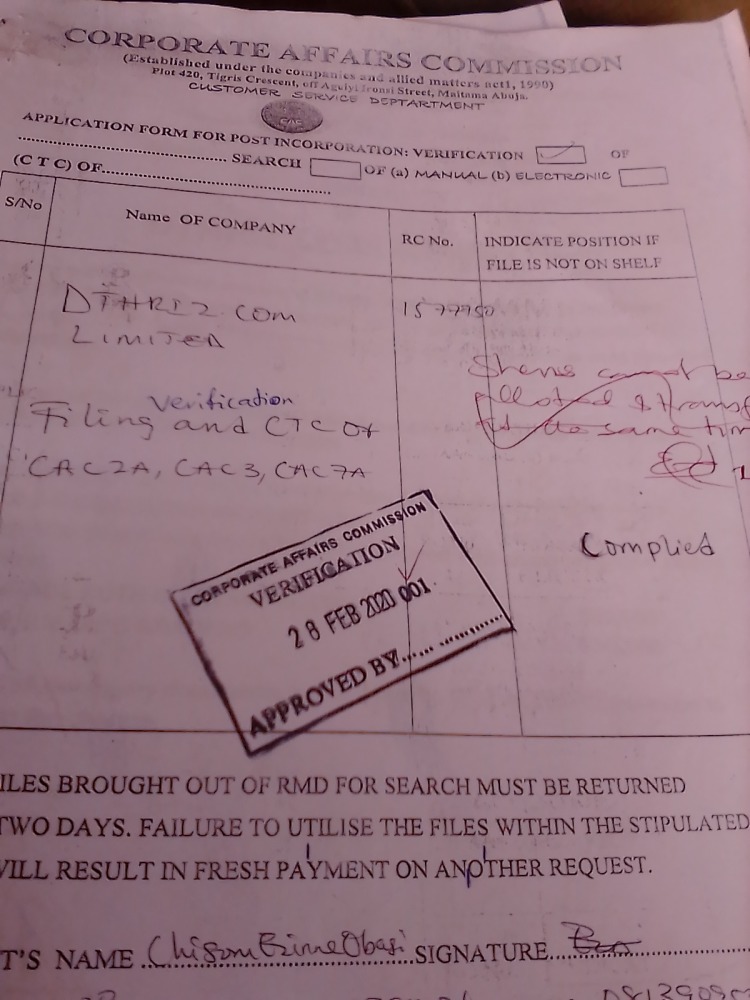 CORPORATE AFFAIRS COMMISSION
(Established under the companies and allied matters act1, 1990)
Plot 420, Tigris Crescent, off Aguiyi Ironsi Street, Maitama Abuja.
CUSTOMER SERVICE DEPTARTMENT
CAC
APPLICATION FORM FOR POST INCORPORATION: VERIFICATION OF
SEARCH OF (a) MANUAL (b) ELECTRONIC
(C T C) OF
S/No Name OF COMPANY RC No. INDICATE POSITION IF
FILE IS NOT ON SHELF
COM 1577950
LIMITED
Shares cannot be
alloted &
same
Verification
Filing and CTC OF
CAC2A, CAC3, CAC7A
Complied
CORPORATE AFFAIRS COMMISSION
VERIFICATION
28 FEB 2020 001
APPROVED BY
ILES BROUGHT OUT OF RMD FOR SEARCH MUST BE RETURNED
TWO DAYS. FAILURE TO UTILISE THE FILES WITHIN THE STIPULATED
VILL RESULT IN FRESH PAYMENT ON ANOTHER REQUEST.
T'S NAME Chisom Ezinne Obasi SIGNATURE